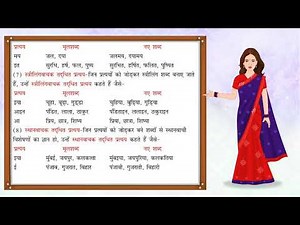 प्रत्यय मूलशब्द नए शब्द
मय जल, दया जलमय, दयामय
इत सुरभि, हर्ष, फल, पुष्प सुरभित, हर्षित, फलित, पुष्पित
(7) स्त्रीलिंगवाचक तद्धित प्रत्यय-जिन प्रत्ययों को जोड़कर स्त्रीलिंग शब्द बनाए जाते
हैं, उन्हें स्त्रीलिंगवाचक तद्धित प्रत्यय कहते हैं जैसे-
प्रत्यय मूलशब्द नए शब्द
इया चूहा, बूढ़ा, गुड्डा चुहिया, बुढ़िया, गुड़िया
आइन पंडित, लाला, ठाकुर पंडिताइन, ललाइन, ठकुराइन
आ प्रिय, छात्र, शिष्य प्रिया, छात्रा, शिष्या
(8) स्थानवाचक तद्धित प्रत्यय-जिन प्रत्ययों को जोड़कर बने शब्दों से स्थानवाची
विशेषणों का ज्ञान हो, उन्हें स्थानवाचक तद्धित प्रत्यय कहते हैं जैसे-
प्रत्यय मूलशब्द नए शब्द
इया मुंबई, जयपुर, कलकत्ता मुंबइया, जयपुरिया, कलकतिया
ई पंजाब, गुजरात, बिहार पंजाबी, गुजराती, बिहारी